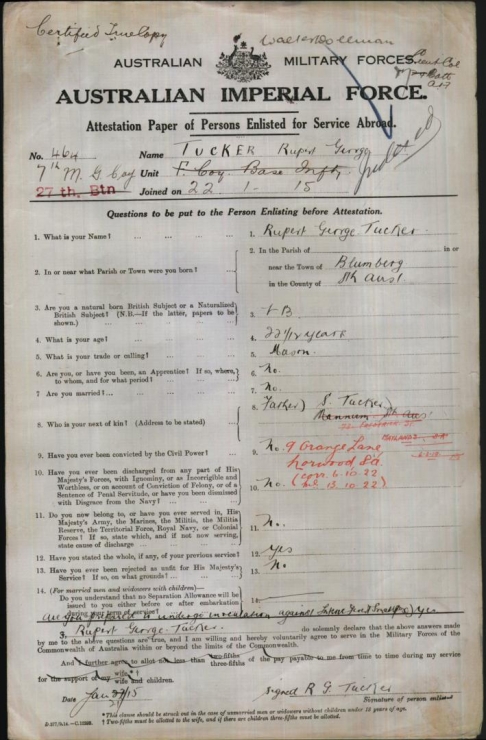 Certified True Copy
Walter Dollman
Lieut Col
AUSTRALIAN MILITARY FORCES.
AUSTRALIAN IMPERIAL FORCE.
Attestation Paper of Persons Enlisted for Service Abroad.
No. 464 Name TUCKER Rupert George
7th M G Coy Unit F. Coy. Base Infty
27th. Btn Joined on 22 - 1 - 15
Questions to be put to the Person Enlisting before Attestation.
1. What is your Name? ... ... ... 1. Rupert George Tucker
2. In or near what Parish or Town were you born? ... 2. In the Parish of in or
near the Town of Blumberg
in the County of Sth Aust
3. Are you a natural born British Subject or a Naturalized
British Subject? (N.B.—If the latter, papers to be
shown.) ... ... 3.
4. What is your age? ... ... ... 4. 22 1/12 years
5. What is your trade or calling? ... ... 5. Mason.
6. Are you, or have you been, an Apprentice? If so, where,
to whom, and for what period? ... 6. No.
7. Are you married? ... ... ... 7. No.
8. Who is your next of kin? (Address to be stated) ... 8. Father) S. Tucker)
Mannum Sth Aus
9. Have you ever been convicted by the Civil Power? ... 9. No.
9 Orange Lane
Norwood S.A.
10. Have you ever been discharged from any part of His
Majesty's Forces, with Ignominy, or as Incorrigible and
Worthless, or on account of Conviction of Felony, or of a
Sentence of Penal Servitude, or have you been dismissed
with Disgrace from the Navy? ... 10. No.
(corr. 6.10.22
13.10.22)
11. Do you now belong to, or have you ever served in, His
Majesty's Army, the Marines, the Militia, the Militia
Reserve, the Territorial Force, Royal Navy, or Colonial
Forces? If so, state which, and if not now serving,
state cause of discharge ... 11. No.
12. Have you stated the whole, if any, of your previous service? 12. Yes
13. Have you ever been rejected as unfit for His Majesty's
Service? If so, on what grounds? ... 13. No
14. (For married men and widowers with children)—
Do you understand that no Separation Allowance will be
issued to you either before or after embarkation
during your term of service? 14.
Are you prepared to undergo inoculation against Small Pox & Yes
3, Rupert George Tucker. do solemnly declare that the above answers made
by me to the above questions are true, and I am willing and hereby voluntarily agree to serve in the Military Forces of the
Commonwealth of Australia within or beyond the limits of the Commonwealth.
And I further agree to allot not less than two-fifths three-fifths of the pay payable to me from time to time during my service
for the support of my wife * † wife and children.
Date Jan 15 Signed R G Tucker
Signature of person enlisted
* This clause should be struck out in the case of unmarried men or widowers without children under 18 years of age.
† Two-fifths must be allotted to the wife, and if there are children three-fifths must be allotted.